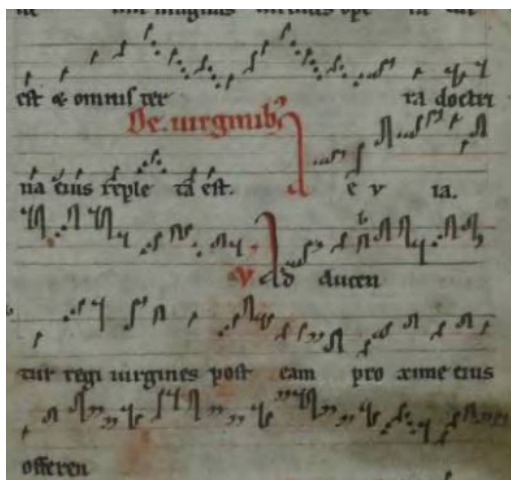 est & omnis ter ra doctri
De uirginibꝰ
na eius reple ta est. A e v ia.
V Ad ducen
tur regi uirgines post eam pro xime eius
offeren